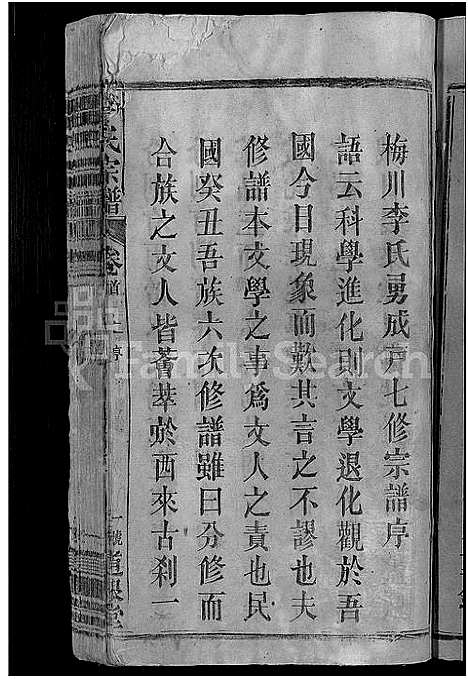 梅川李氏勇成戸七修宗譜序
語云科學進化則文學退化觀於吾
國今日現象而歎其言之不謬也夫
修譜本文學之事爲文人之責也民
國癸丑吾族六次修譜雖曰分修而
合族之文人皆薈萃於西來古刹一
氏宗譜
卷首上
一號
FamilySearch